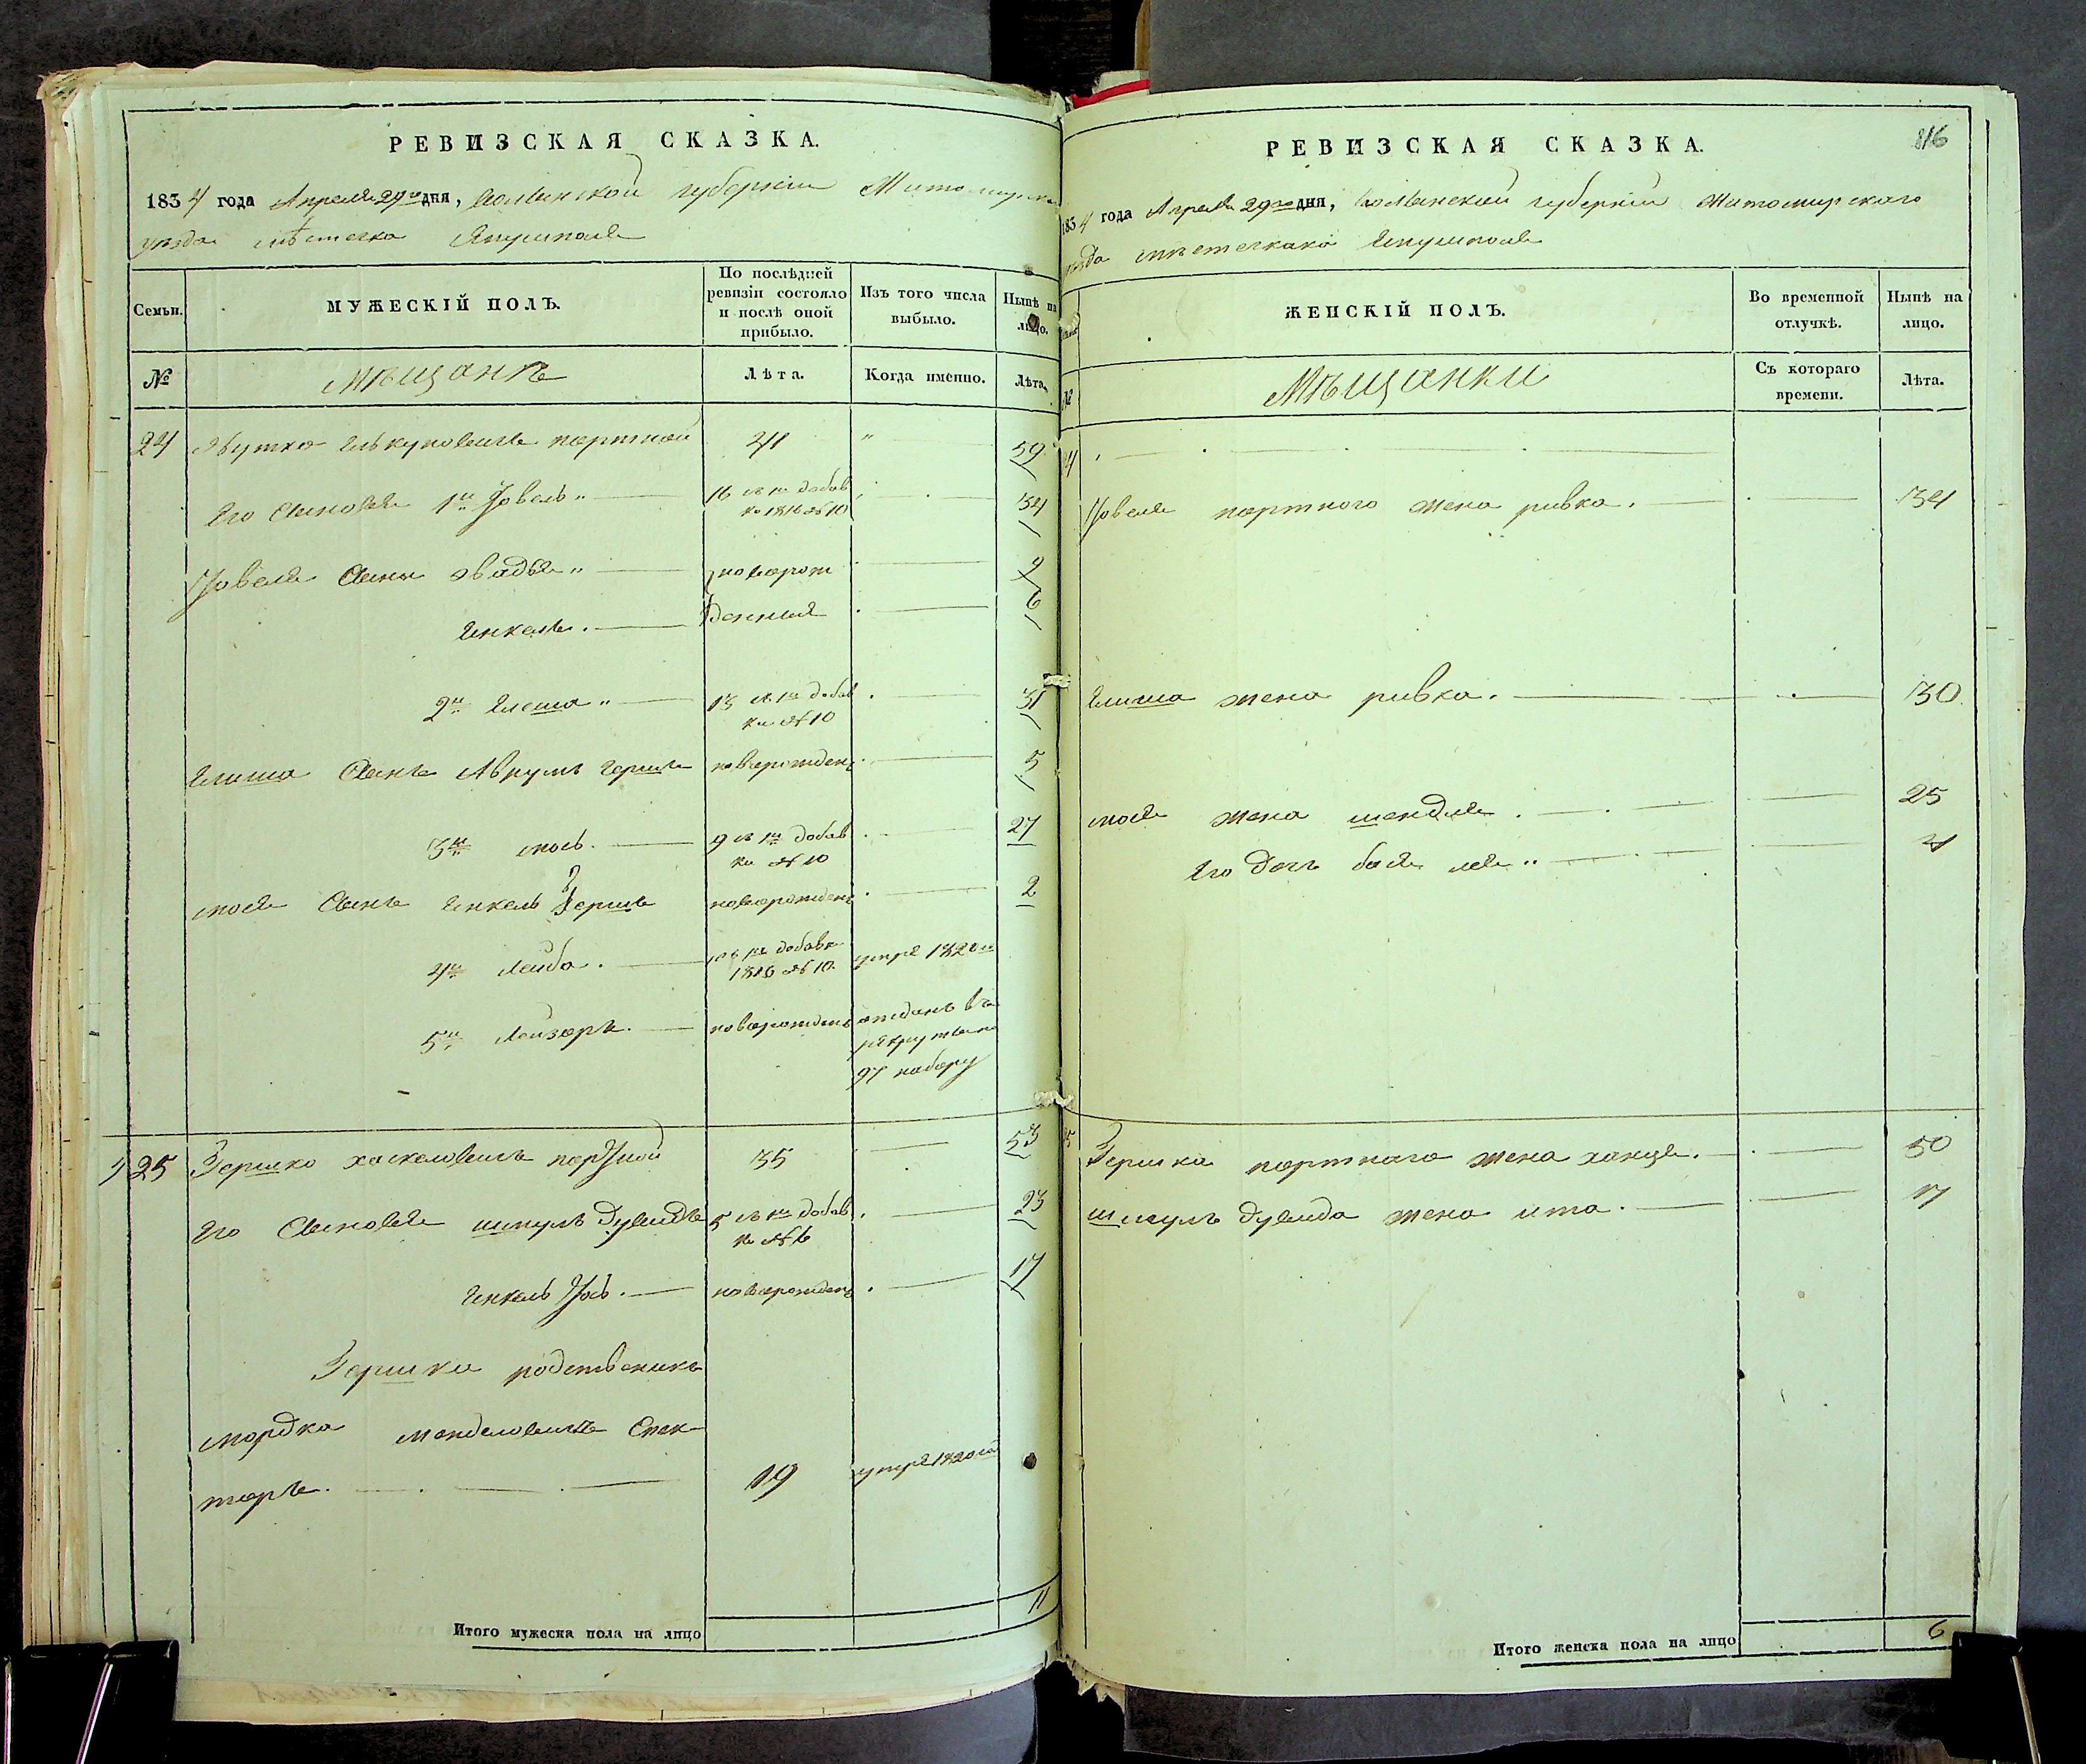 РЕВИЗСКАЯ СКАЗКА.
1834 года Апреля 29го дня, Волынской губернии Житомирска
уезда мѣстечка Янушполя
Семьи.
МУЖЕСКІЙ ПОЛЪ.
По послѣдней ревизіи состояло и послѣ оной прибыло.
Изъ того числа выбыло.
Нынѣ на лицо.
№
Мѣщанѣ
Лѣта.
Когда именно.
Лѣта.
24 Янкуповичь портной 41 " 59
Его Сыновья 1й Іовель " 16 добав 34
ка 1816 № 10
Іовеля Сыны " новорож 9
Янкель. денныя 6
2й Елеша " 13 добав 31
ка № 10
Елиша Сынъ Аврумъ Гершъ новорожден 5
3й мось. 9 добав 27
ка № 10
мося Сынъ Янкель Гершъ новорожден 2
4й Лейба. добавк умре 1820
1816 № 10
5й Лейзоръ. новорожден отданъ въ
рекруты по
97 набору
25 Гершко хаскеловичь портной 35 53
Его Сыновья шмуль Дувидъ 5 добав 23
ка № 6
Янкель Іось. новорожден 17
Гершки родственикъ
мордко менделовичъ Спек-
торъ. 19 умре 1820
Итого мужеска пола на лицо 11
РЕВИЗСКАЯ СКАЗКА.
816
1834 года Апреля 29го дня, Волынской губерніи Житомирскаго
уезда мѣстечкако Янушполя
ЖЕНСКІЙ ПОЛЪ.
Во временной отлучкѣ.
Нынѣ на лицо.
№
Мѣщанки
Съ котораго времени.
Лѣта.
Іовеля портного жена ривка. 34
Елиша жена ривка. 30
мося жена шендля. 25
Его дочь бася лея " 4
25 Гершка портнаго жена ханце. 50
шмуль дувида жена ита. 17
Итого женска пола на лицо 6